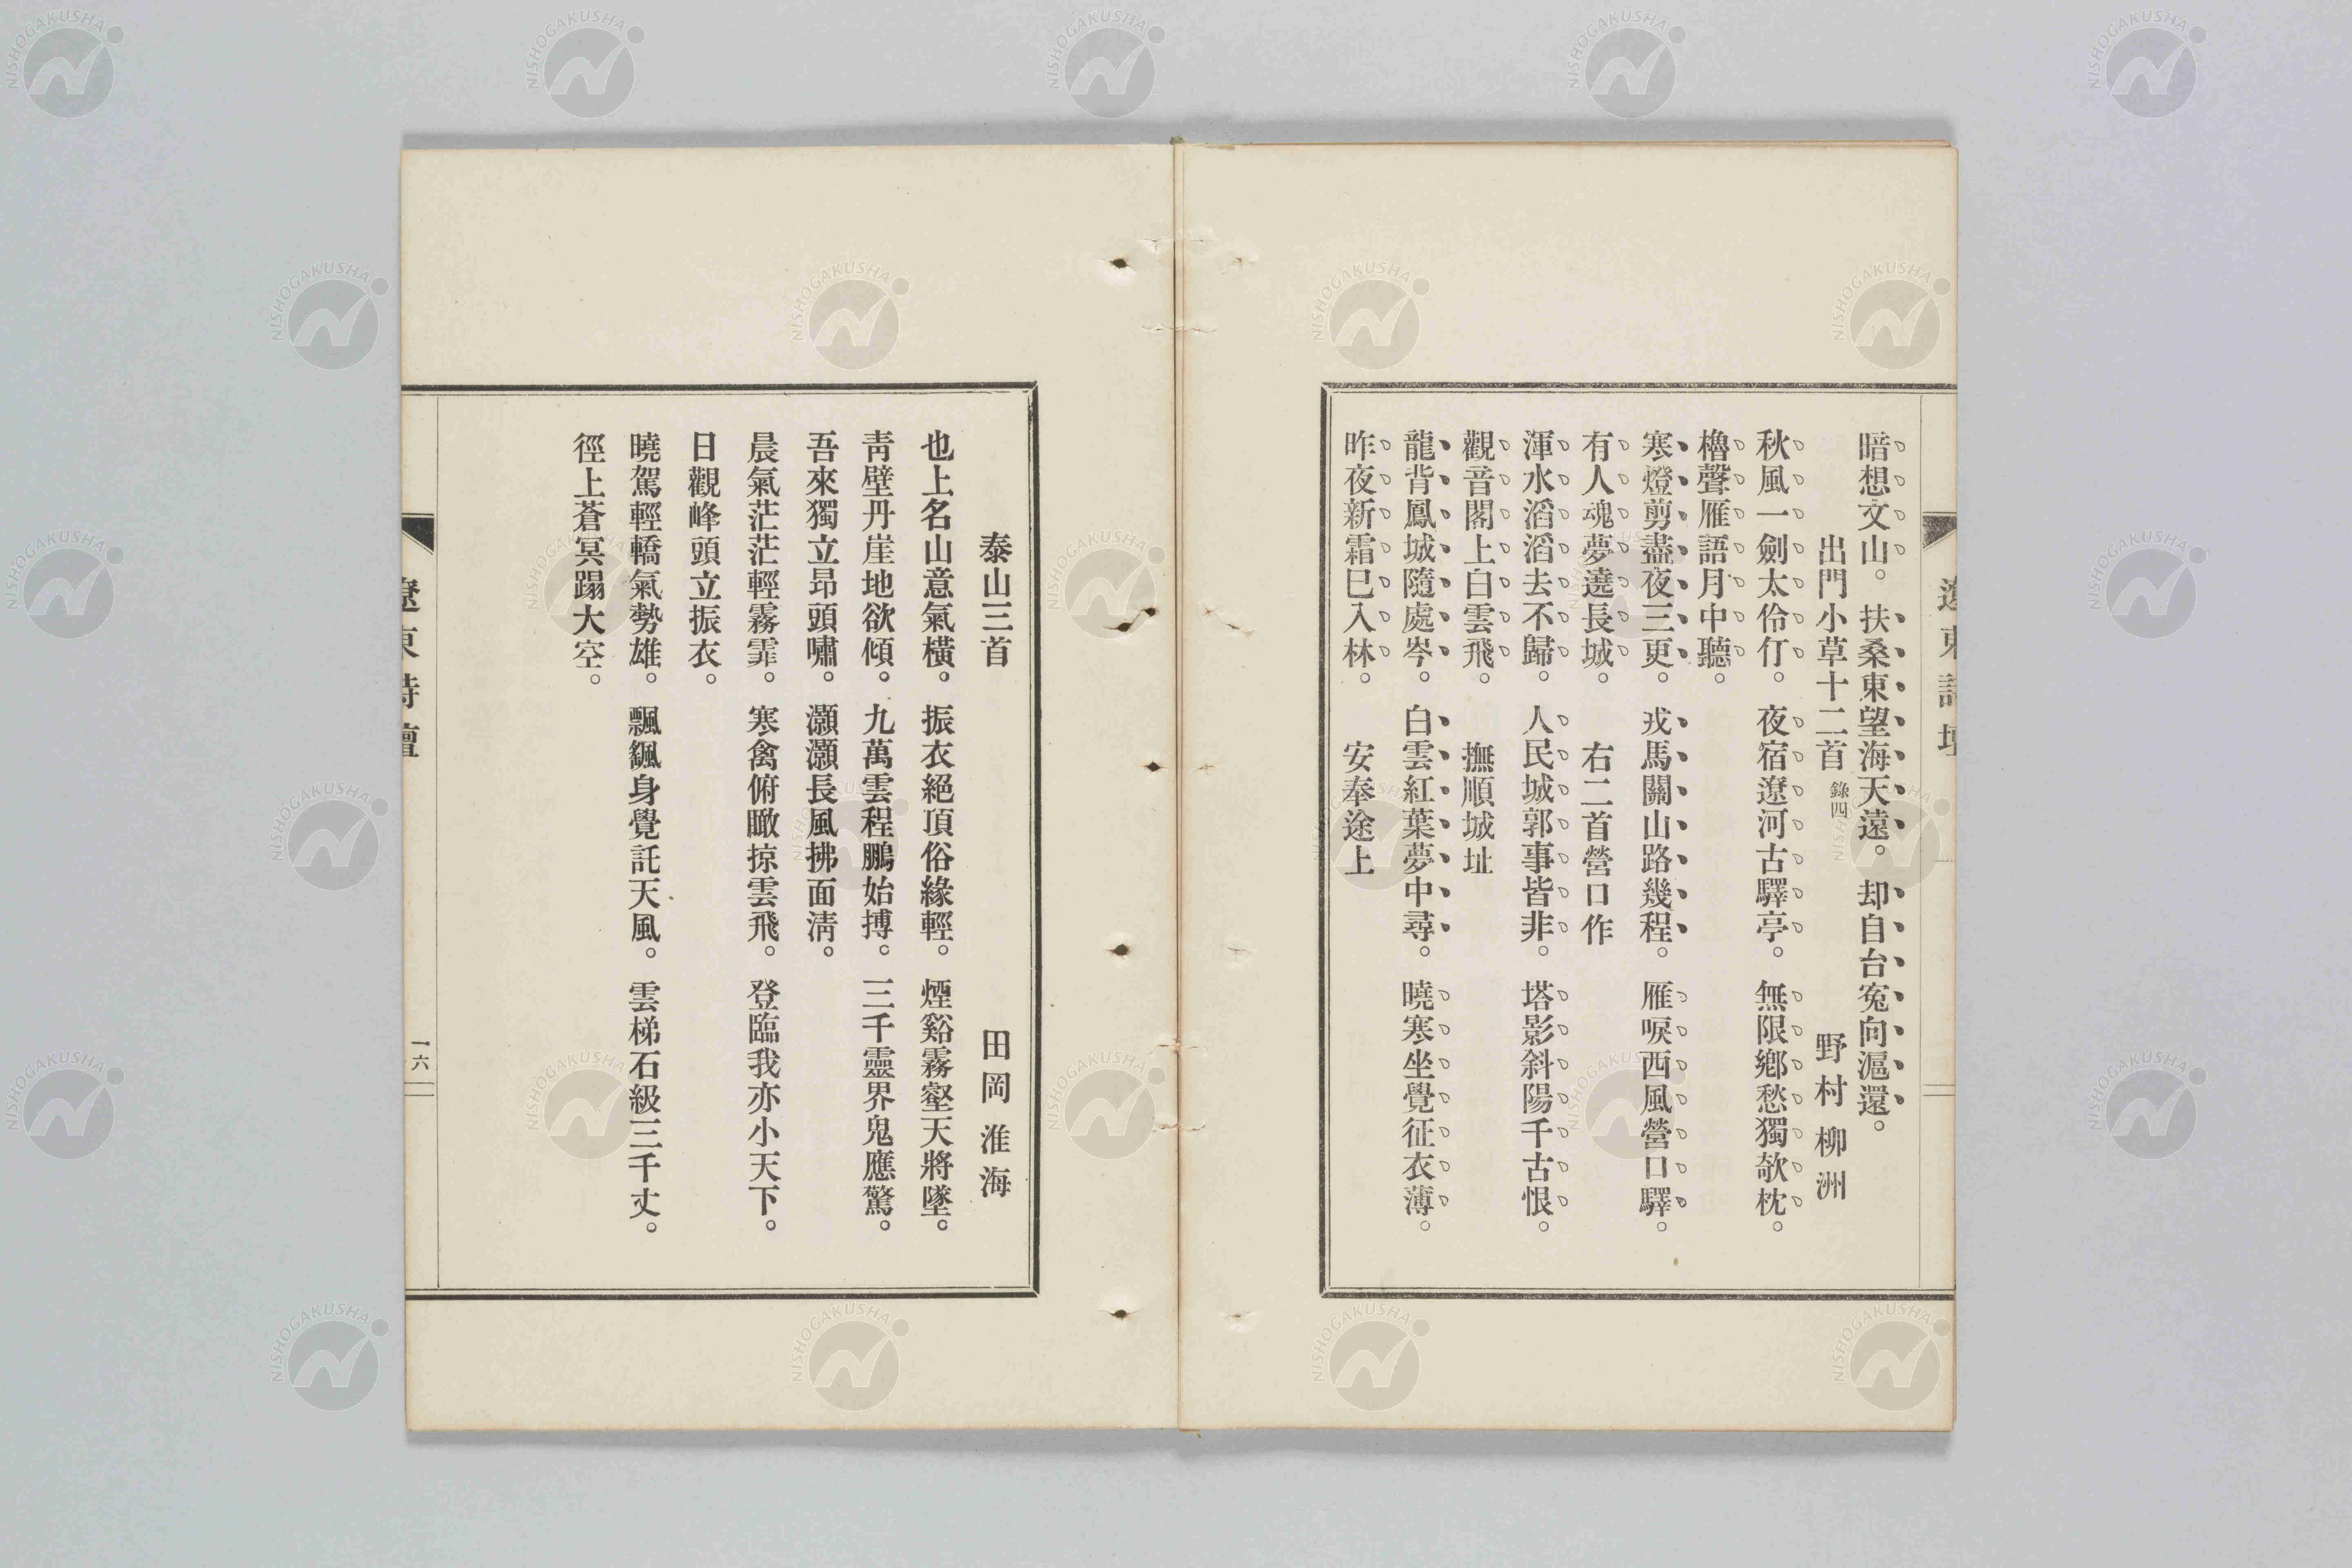 遼東詩壇
暗想文山。扶桑東望海天遠。却自台寃向滬還。
出門小草十二首 錄四 野村柳洲
秋風一劍太伶仃。夜宿遼河古驛亭。無限鄉愁獨欹枕。
櫓聲雁語月中聽。
寒燈剪盡夜三更。戎馬關山路幾程。雁唳西風營口驛。
有人魂夢遶長城。 右二首營口作
渾水滔滔去不歸。人民城郭事皆非。塔影斜陽千古恨。
觀音閣上白雲飛。 撫順城址
龍背鳳城隨處岑。白雲紅葉夢中尋。曉寒坐覺征衣薄。
昨夜新霜已入林。 安奉途上
泰山三首 田岡淮海
也上名山意氣橫。振衣絕頂俗緣輕。煙谿霧壑天將墜。
靑壁丹崖地欲傾。九萬雲程鵬始搏。三千靈界鬼應驚。
吾來獨立昂頭嘯。灝灝長風拂面淸。
晨氣茫茫輕霧霏。寒禽俯瞰掠雲飛。登臨我亦小天下。
日觀峰頭立振衣。
曉駕輕轎氣勢雄。飄飄身覺託天風。雲梯石級三千丈。
徑上蒼冥蹋大空。
遼東詩壇
一六
NISHOGAKUSHA